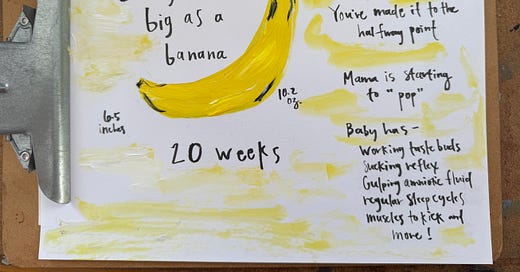 big as a
banana
10.2
oz.
6.5
inches
20 weeks
You've made it to the
halfway point
Mama is starting
to "pop"
Baby has-
working taste buds
sucking reflex
Gulping amniotic fluid
regular sleep cycles
muscles to kick and
more!